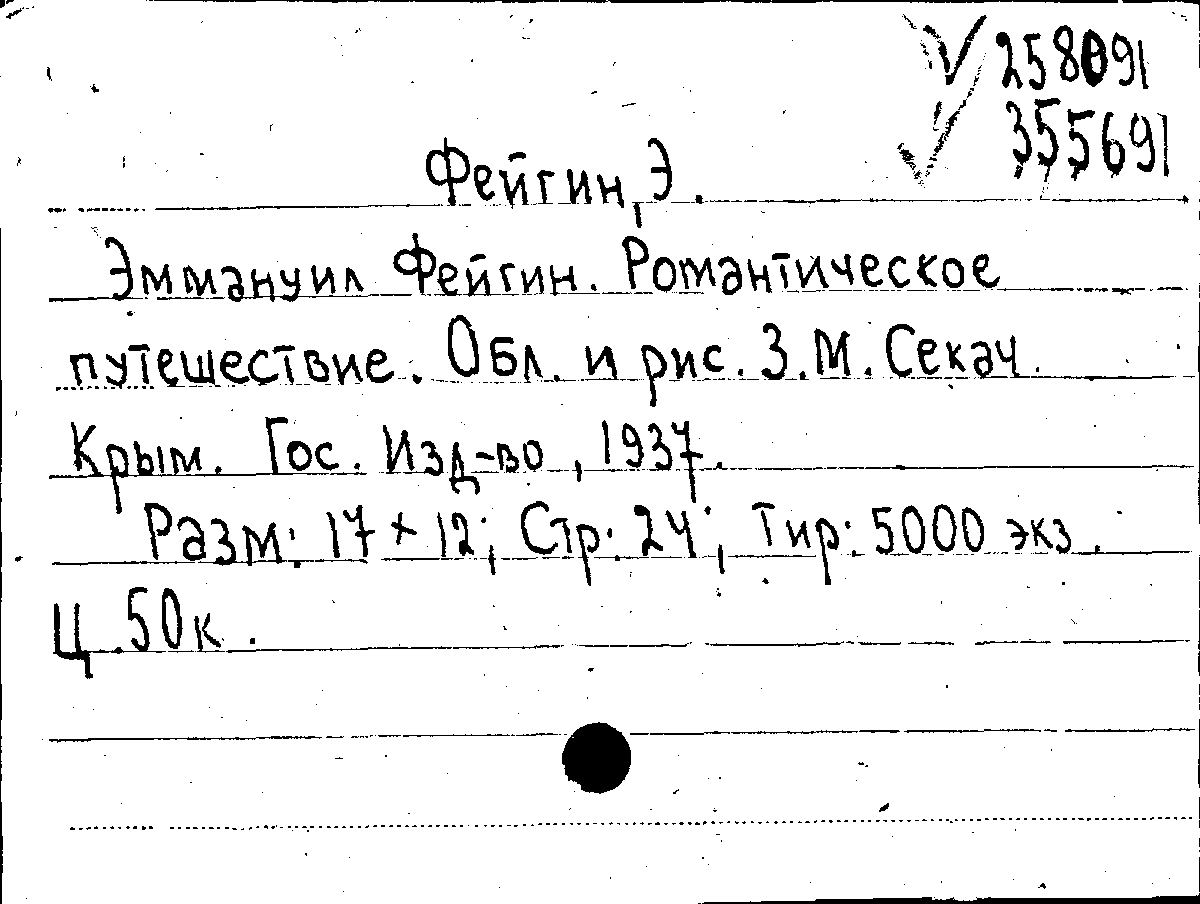 258091
355691
Фейгин, Э.
Эммануил Фейгин. Романтическое
путешествие. Обл. и рис. З.М. Секач.
Крым. Гос. Изд-во, 1937.
Разм: 17 × 12; Стр: 24; Тир: 5000 экз.
Ц. 50к.